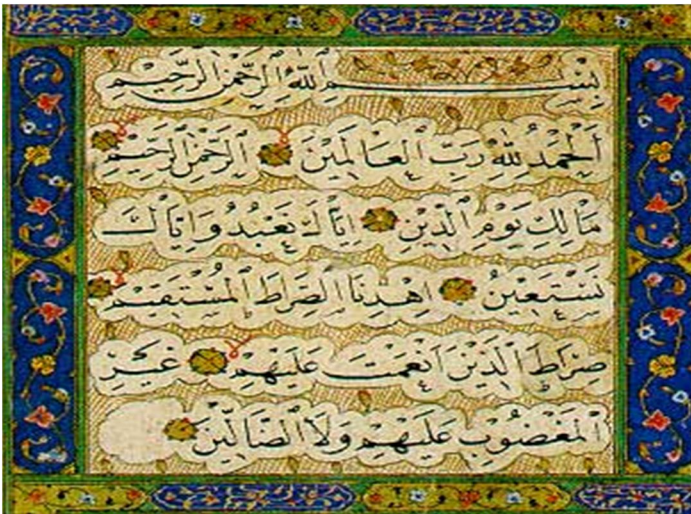 بِسْمِ ٱللَّهِ ٱلرَّحْمَٰنِ ٱلرَّحِيمِ
اَلْحَمْدُ لِلَّهِ رَبِّ ٱلْعَالَمِينَ ٱلرَّحْمٰنِ ٱلرَّحِيمِ
مَالِكِ يَوْمِ ٱلدِّينِ اِيَّاكَ نَعْبُدُ وَاِيَّاكَ
نَسْتَعِينُ اِهْدِنَا ٱلصِّرَاطَ ٱلْمُسْتَقِيمَ
صِرَاطَ ٱلَّذِينَ اَنْعَمْتَ عَلَيْهِمْ غَيْرِ
ٱلْمَغْضُوبِ عَلَيْهِمْ وَلَا ٱلضَّالِّينَ